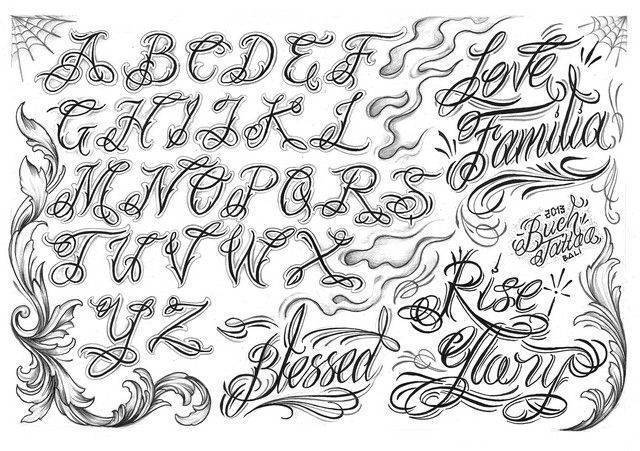 A B C D E F
G H I J K L
M N O P Q R S
T U V W X
Y Z
Love
Familia
2013
Buen
BALI
Rise
Glory
Blessed